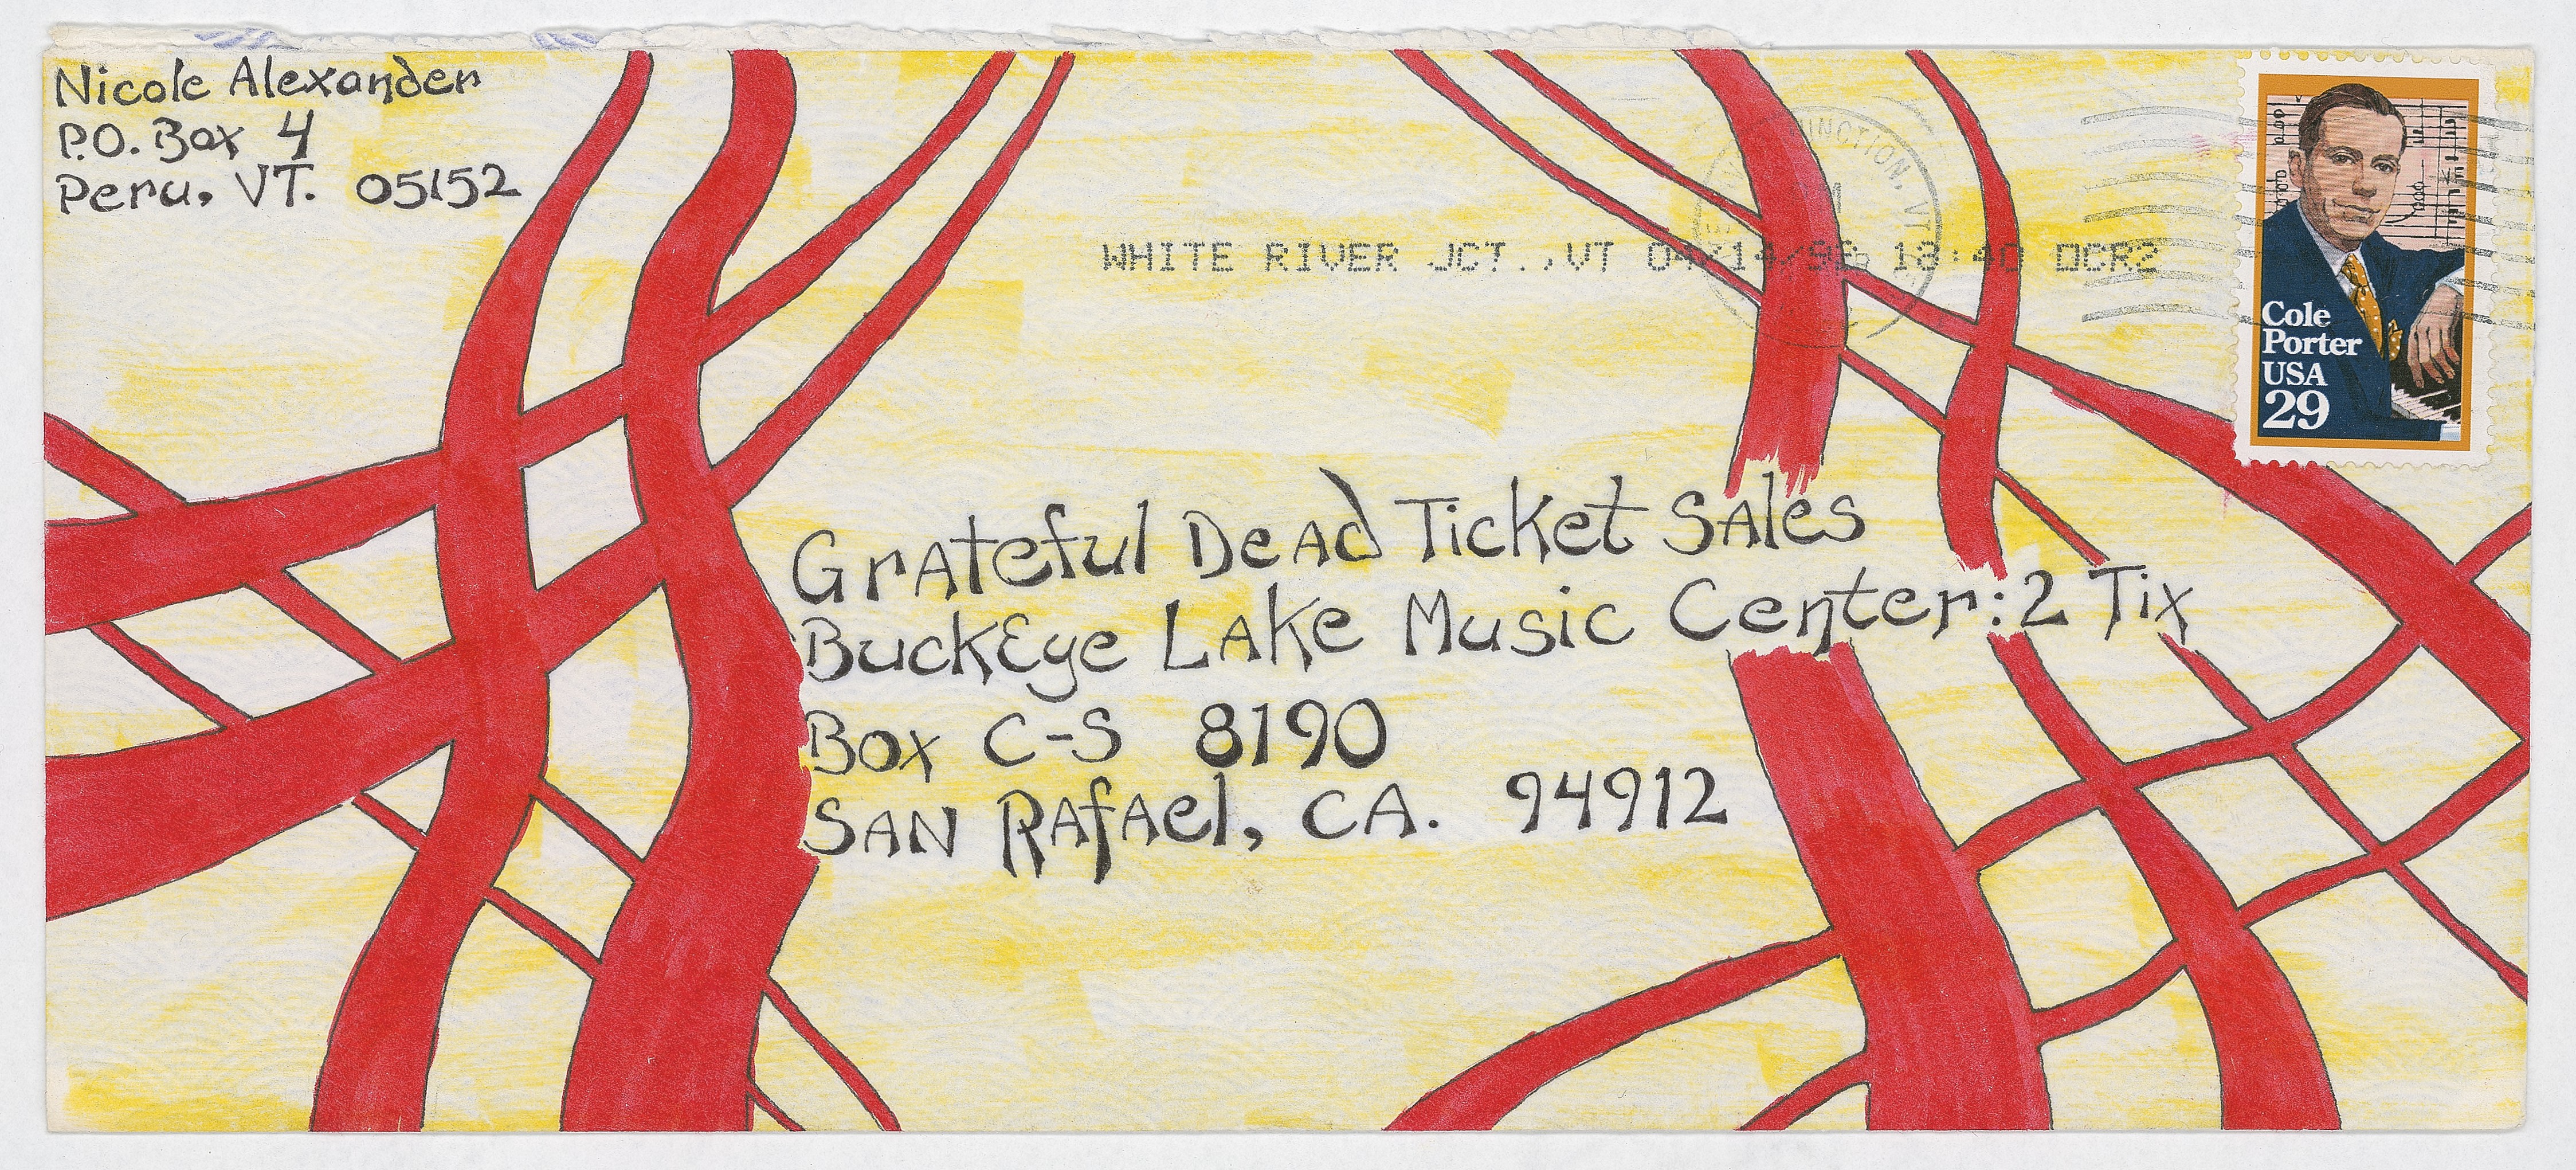 Nicole Alexander
P.O. Box 4
Peru, VT. 05152
JUNCTION, VT
WHITE RIVER JCT., VT 04/14/9 18:40 OCR2
Cole
Porter
USA
29
Grateful Dead Ticket Sales
BuckEye Lake Music Center: 2 Tix
Box C-S 8190
SAN Rafael, CA. 94912